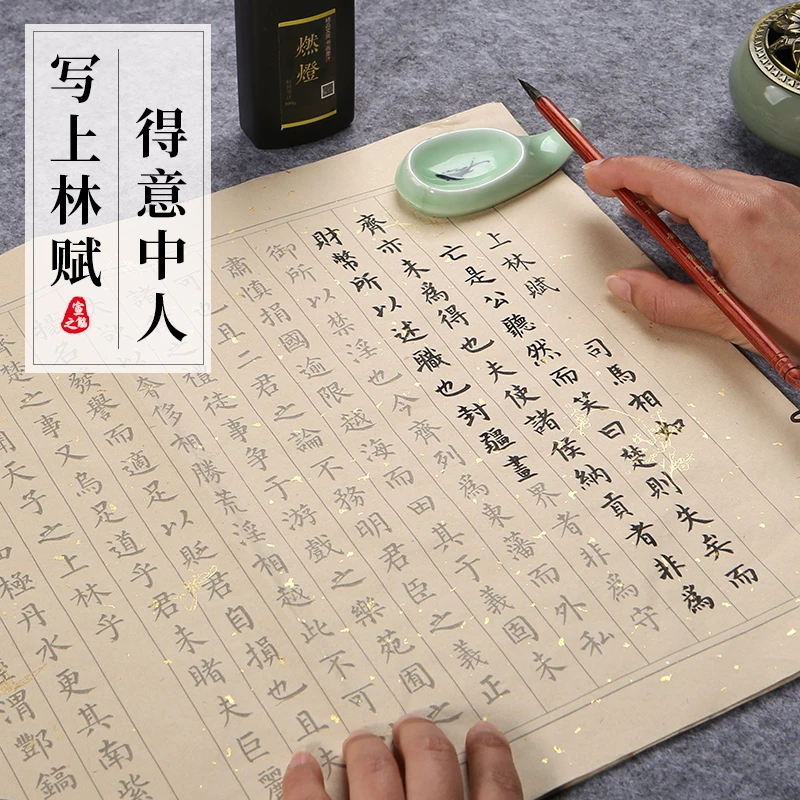 得意中人
写上林赋
燃燈
上林賦 司馬相如
亡是公聽然而笑曰楚則失矣而
齊亦未爲得也夫使諸侯納貢者非爲
財幣所以述職也封疆畫界者非爲守
御所以禁淫也今齊列爲東藩而外私
肅慎捐國逾限越海而田其于義固未
可也且二君之論不務明君臣之義正
之禮徒事争于游戲之樂苑囿之
奢侈相勝荒淫相越此不可
揚名發譽而適足以貶君自損也且夫
齊楚之事又烏足道乎君未睹夫巨麗
聞天子之上林乎
極丹水更其南紫
渭酆鎬